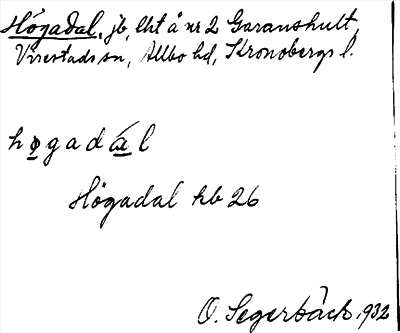 Högadal, jb, lht å nr 2 Garanshult,
Virestads sn, Allbo hd, Kronobergs l.
høgadál
Högadal hb 26
O. Segerbäck 1932